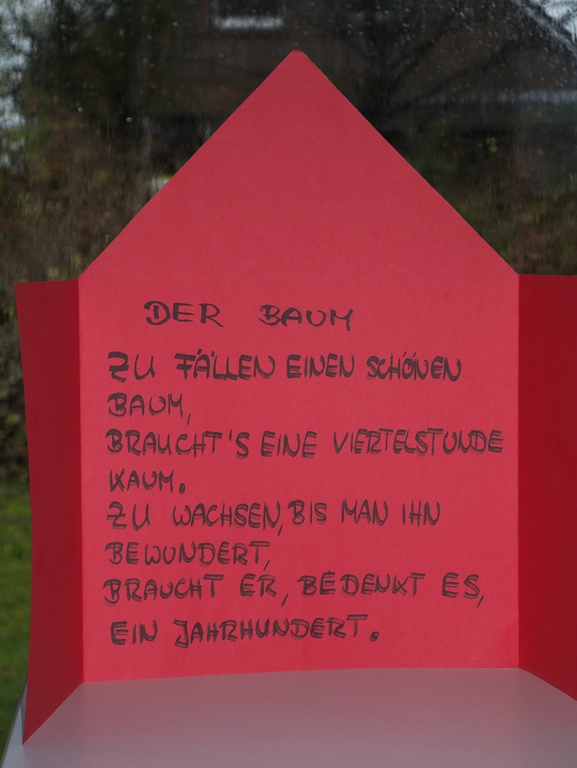 DER BAUM
ZU FÄLLEN EINEN SCHÖNEN
BAUM,
BRAUCHT'S EINE VIERTELSTUNDE
KAUM.
ZU WACHSEN, BIS MAN IHN
BEWUNDERT,
BRAUCHT ER, BEDENKT ES,
EIN JAHRHUNDERT.